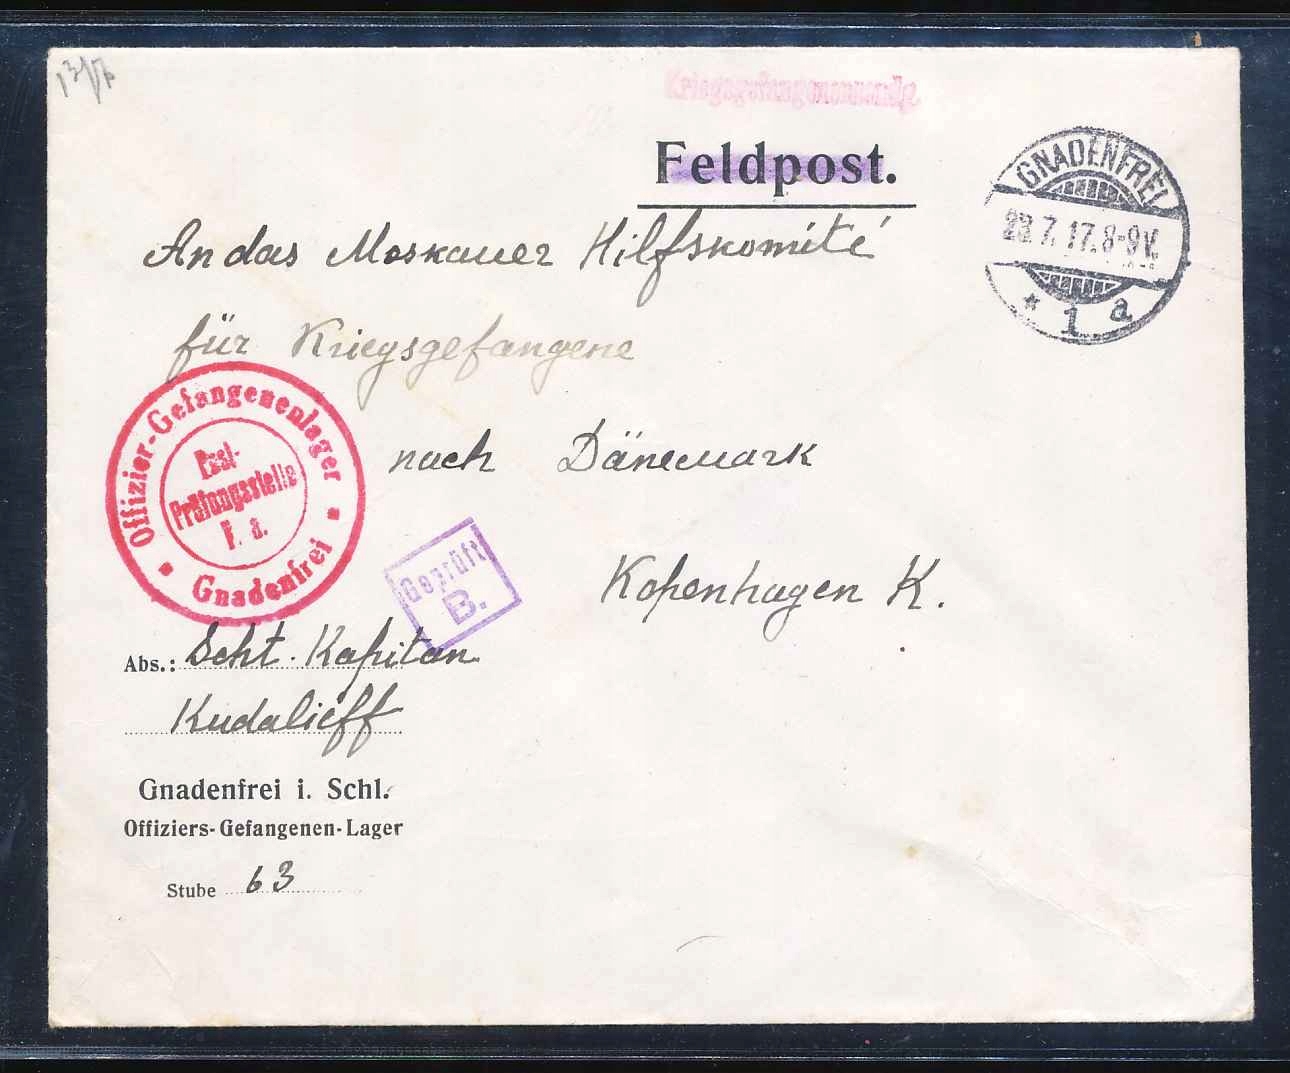 13/7
Feldpost.
GNADENFREI
23.7.17.8-9V.
* 1 a
An das Moskauer Hilfskomité
für Kriegsgefangene
nach Dänemark
Kopenhagen K.
Offizier-Gefangenenlager
Post-
Prüfungsstelle
F. a.
Gnadenfrei
Geprüft
B.
Abs.: Scht. Kapitan
Kudalieff
Gnadenfrei i. Schl.
Offiziers-Gefangenen-Lager
Stube 63